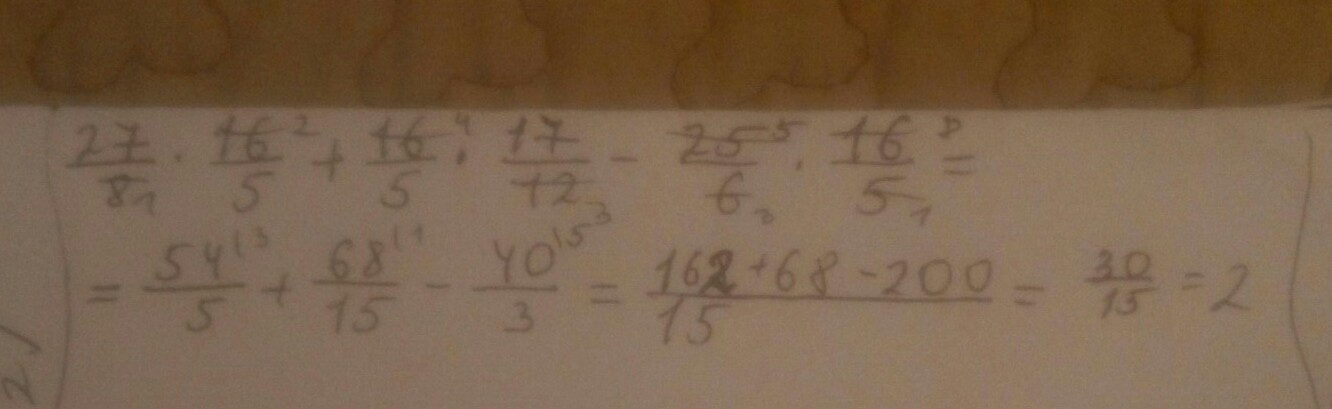 27/8₁ · 16²/5 + 16⁴/5 · 17/12₃ - 25⁵/6₃ · 16⁸/5₁ =
= 54⁽³/5 + 68⁽¹/15 - 40⁽⁵/3 = 162+68-200/15 = 30/15 = 2
2)